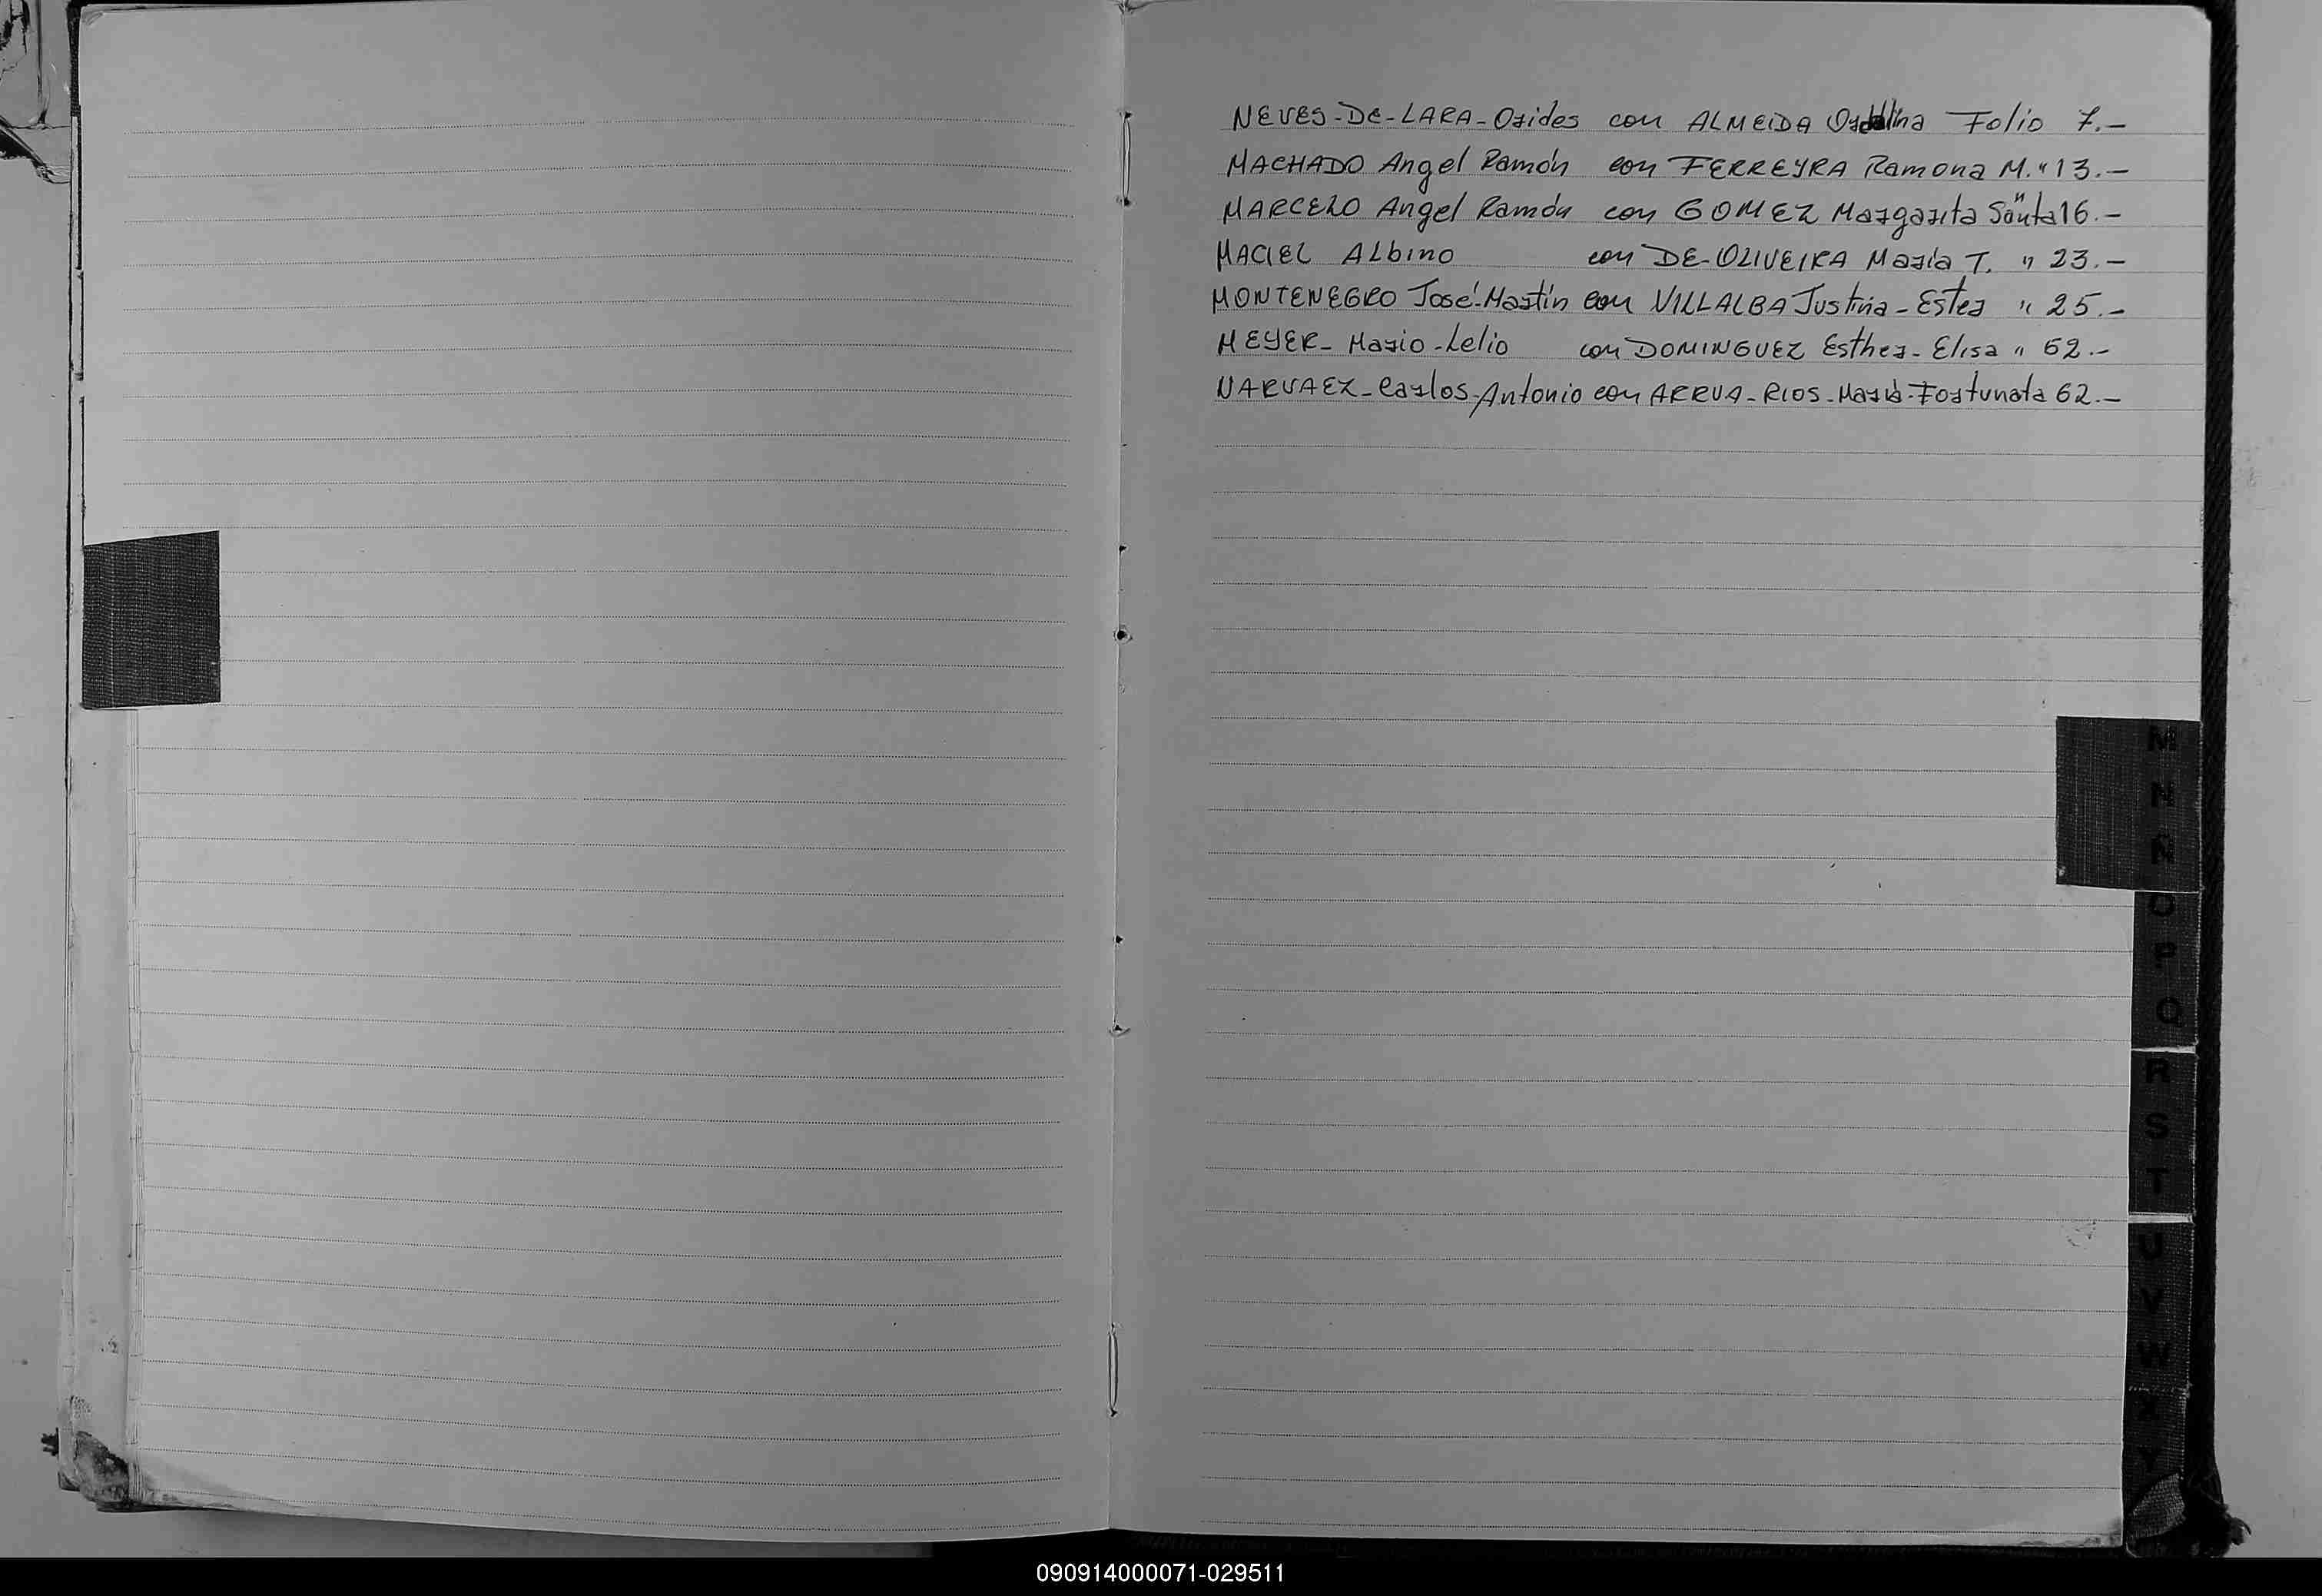 NEVES-DE-LARA-Osides con ALMEIDA Folio 7.-
MACHADO Angel Ramón con FERREYRA Ramona M. " 13.-
MARCELO Angel Ramón con GOMEZ Margarita Santa " 16.-
MACIEL Albino con DE-OLIVEIRA María T. " 23.-
MONTENEGRO José-Martín con VILLALBA Justina-Ester " 25.-
MEYER-Mario-Lelio con DOMINGUEZ Esther-Elisa " 52.-
NARVAEZ-Carlos-Antonio con ARRUA-RIOS-María-Fortunata 62.-
M
N
Ñ
O
P
Q
R
S
T
U
V
W
X
Y
090914000071-029511